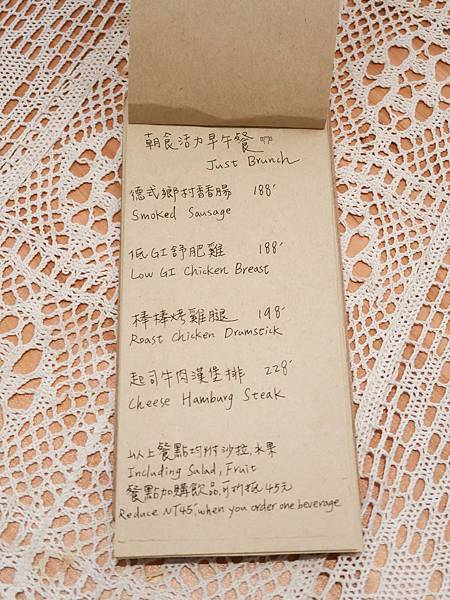 朝食活力早午餐
Just Brunch
德式鄉村香腸 188
Smoked Sausage
低GI舒肥雞 188
Low GI Chicken Breast
棒棒烤雞腿 198
Roast Chicken Drumstick
起司牛肉漢堡排 228
Cheese Hamburg Steak
以上餐點均附沙拉,水果
Including Salad, Fruit
餐點加購飲品,可折抵45元
Reduce NT45, when you order one beverage